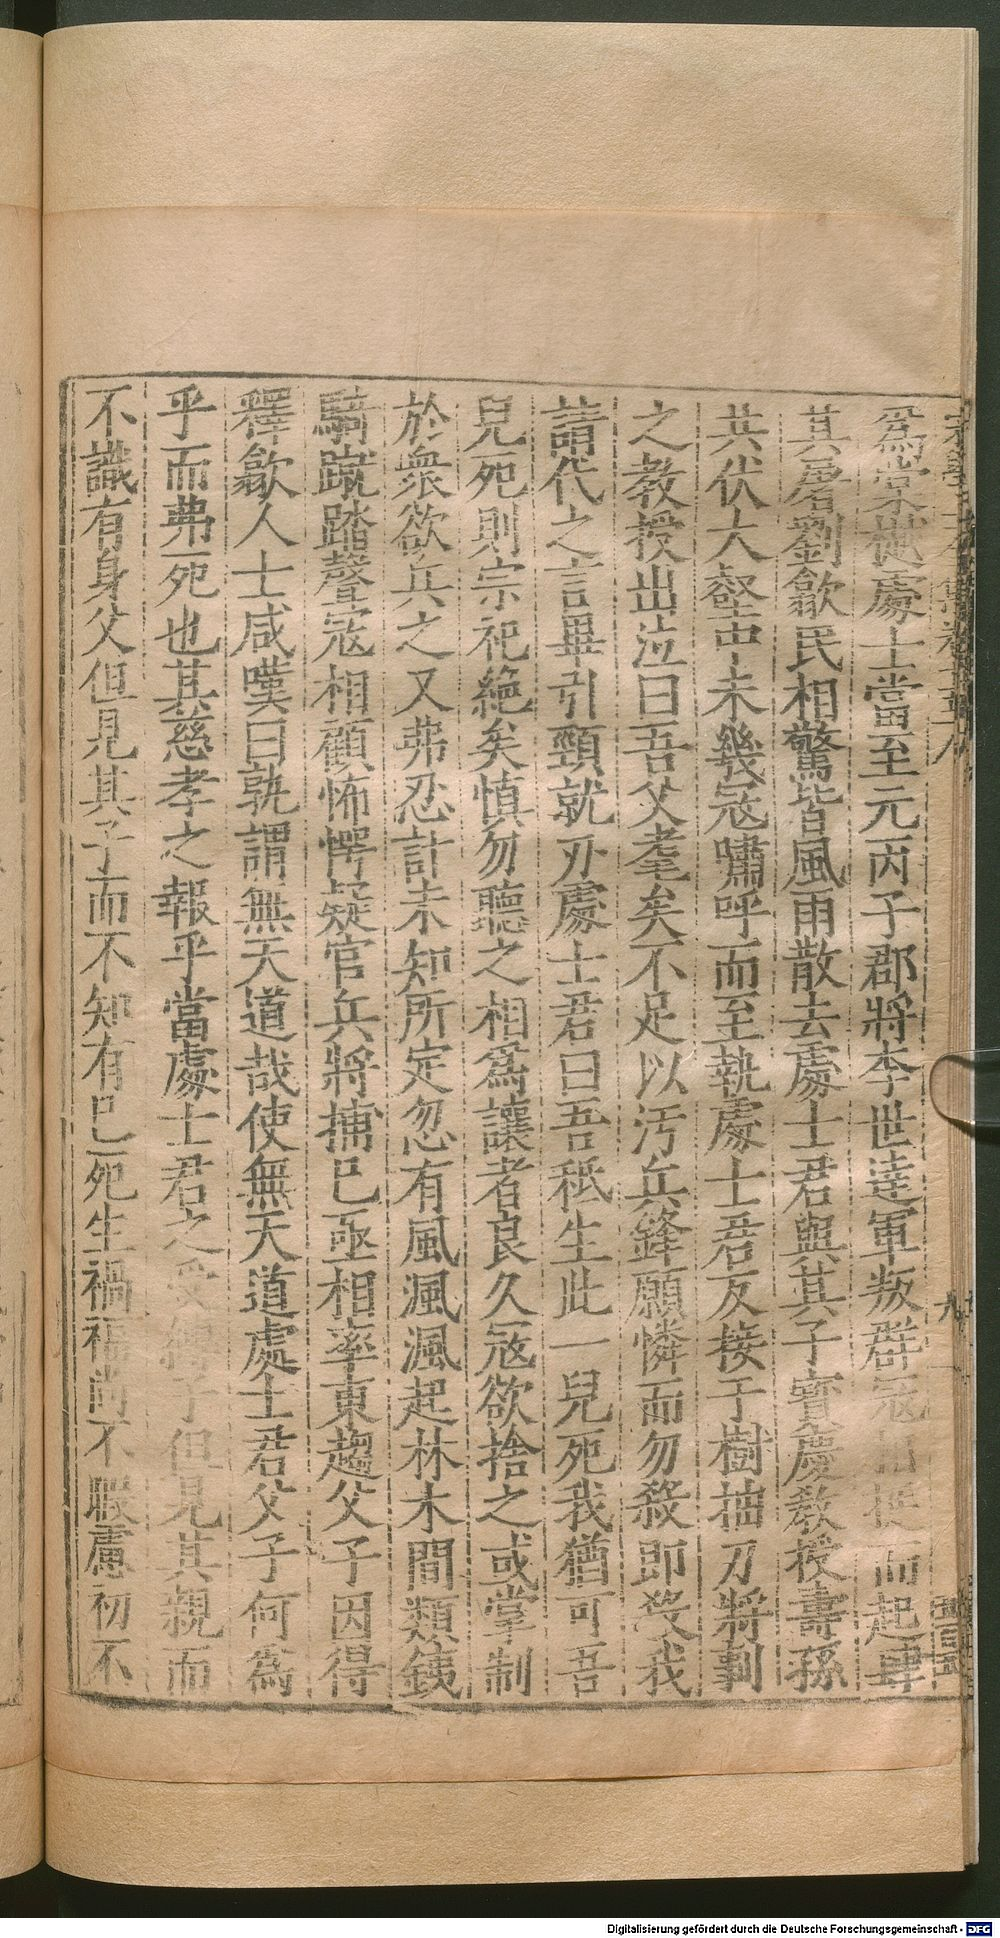 爲棠樾處士當至元丙子郡將李世達軍叛群寇相挻而起肆
其屠劉歙民相驚皆風雨散去處士君與其子寶慶教授壽孫
共伏大壑中未幾寇嘯呼而至執處士君反接于樹抽刀將剚
之教授出泣曰吾父耄矣不足以汚兵鋒願憐而勿殺即殺我
請代之言畢引頸就刃處士君曰吾秖生此一兒死我猶可吾
兒死則宗祀絶矣慎勿聽之相爲讓者良久寇欲捨之或掌制
於衆欲兵之又弗忍計未知所定忽有風渢渢起林木間類鐵
騎蹴踏聲寇相顧怖愕疑官兵將捕已亟相率東趨父子因得
釋歙人士咸嘆曰孰謂無天道哉使無天道處士君父子何爲
乎而弗死也其慈孝之報乎當處士君之受縛子但見其親而
不識有身父但見其子而不知有已死生禍福尚不暇慮初不
Digitalisierung gefördert durch die Deutsche Forschungsgemeinschaft - DFG